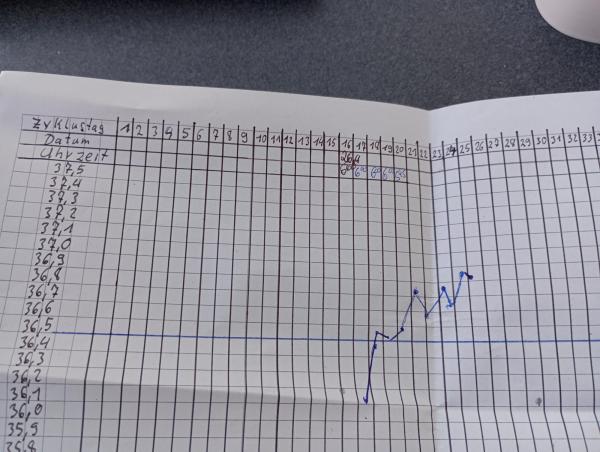 Zyklustag 1 2 3 4 5 6 7 8 9 10 11 12 13 14 15 16 17 18 19 20 21 22 23 24 25 26 27 28 29 30 31 32 33
Datum
Uhrzeit
37,5
37,4
37,3
37,2
37,1
37,0
36,9
36,8
36,7
36,6
36,5
36,4
36,3
36,2
36,1
36,0
35,9
35,8